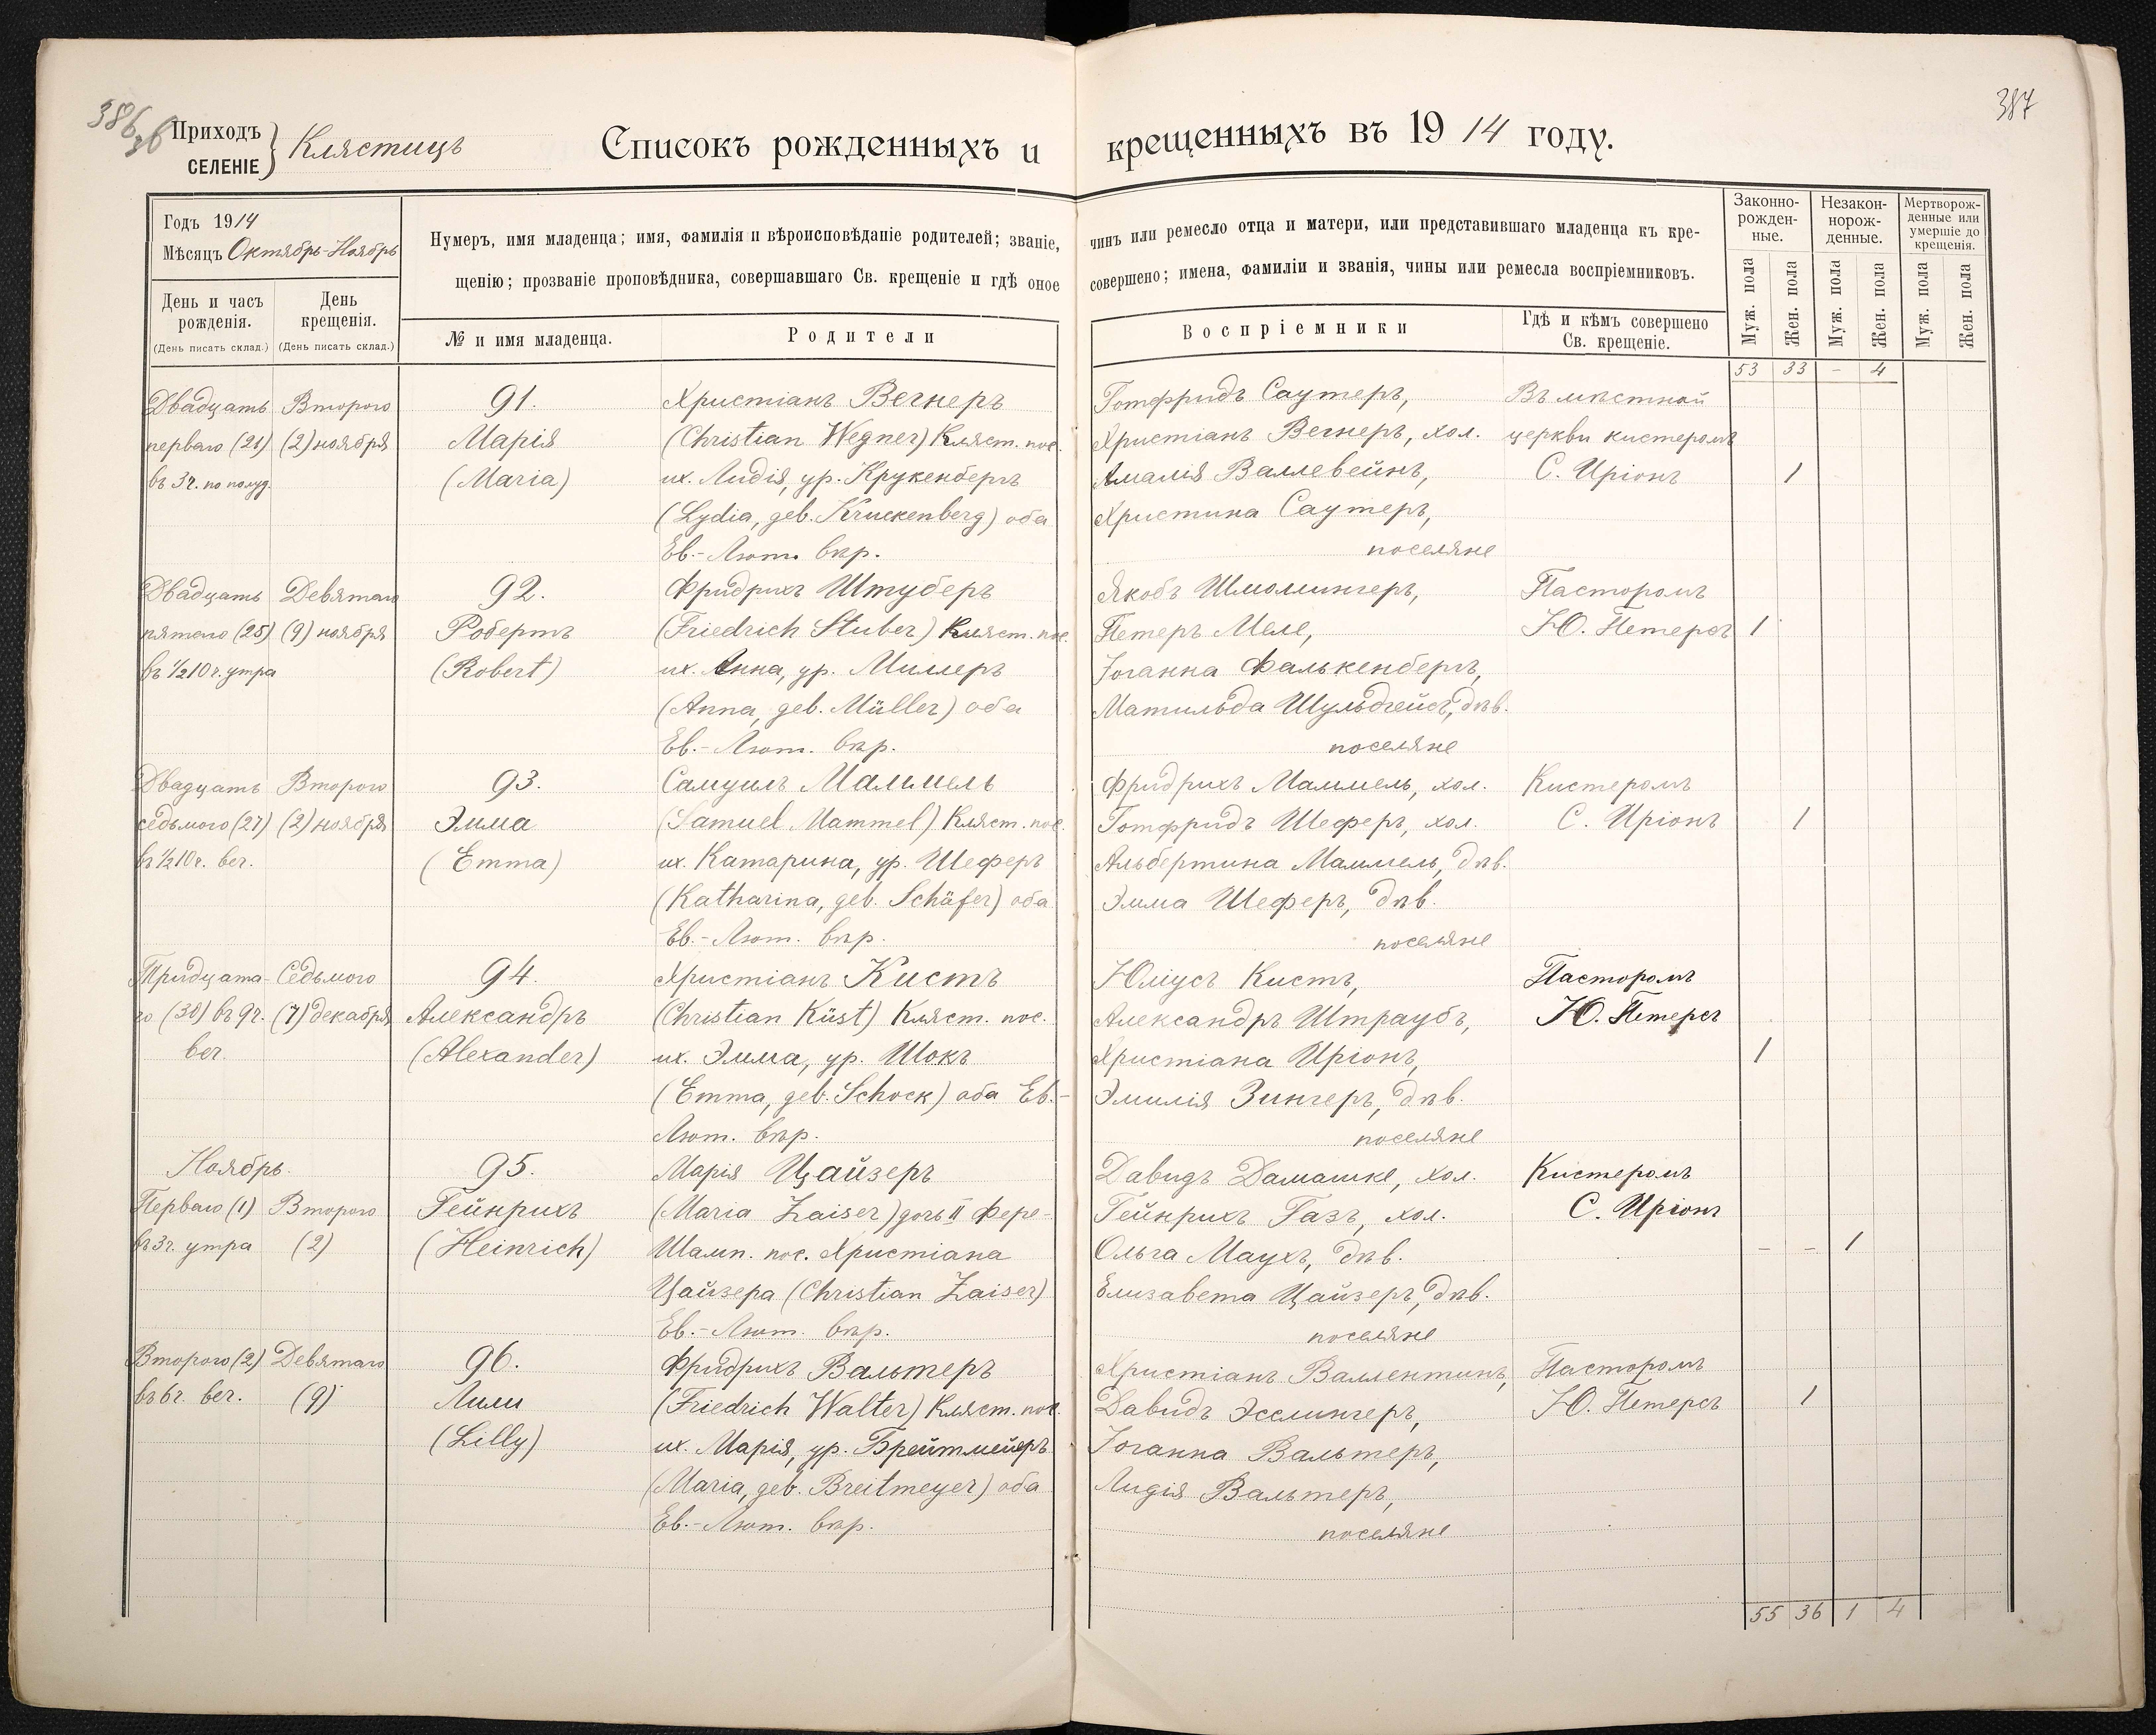 386
36
387
Приходъ
СЕЛЕНІЕ
Клястицъ
Списокъ рожденныхъ и крещенныхъ въ 1914 году.
Годъ 1914
Мѣсяцъ Октябрь-Ноябрь
День и часъ рожденія.
(День писать склад.)
День крещенія.
(День писать склад.)
Нумеръ, имя младенца; имя, фамилія и вѣроисповѣданіе родителей; званіе, чинъ или ремесло отца и матери, или представившаго младенца къ кре-
щенію; прозваніе проповѣдника, совершавшаго Св. крещеніе и гдѣ оное совершено; имена, фамиліи и званія, чины или ремесла воспріемниковъ.
№ и имя младенца.
Родители
Воспріемники
Гдѣ и кѣмъ совершено
Св. крещеніе.
Законно-
рожден-
ные.
Незакон-
норож-
денные.
Мертворож-
денные или
умершіе до
крещенія.
Муж. пола
Жен. пола
Муж. пола
Жен. пола
Муж. пола
Жен. пола
53 33 - 4
Двадцать
перваго (21)
въ 3 ч. по полуд.
Второго
(2) ноября
91.
Марія
(Maria)
Христіанъ Вегнеръ
(Christian Wegner) Кляст. пос.
их. Лидія, ур. Крукенбергъ
(Lydia, geb. Kruckenberg) оба
Ев.-Лют. вѣр.
Готфридъ Саутеръ,
Христіанъ Вегнеръ, хол.
Амалія Валлевейнъ,
Христина Саутеръ,
поселяне
Въ мѣстной
церкви кистеромъ
С. Иріонъ
1
Двадцать
пятаго (25)
въ ½10 ч. утра
Девятаго
(9) ноября
92.
Робертъ
(Robert)
Фридрихъ Штуберъ
(Friedrich Stuber) Кляст. пос.
их. Анна, ур. Миллеръ
(Anna, geb. Müller) оба
Ев.-Лют. вѣр.
Якобъ Шмолингеръ,
Петеръ Меле,
Іоганна Фалькенбергъ,
Матильда Шульдгейсъ, дѣв.
поселяне
Пасторомъ
Ю. Петерсъ
1
Двадцать
седьмого (27)
въ ½10 ч. веч.
Второго
(2) ноября
93.
Эмма
(Emma)
Самуилъ Маммель
(Samuel Mammel) Кляст. пос.
их. Катарина, ур. Шеферъ
(Katharina, geb. Schäfer) оба
Ев.-Лют. вѣр.
Фридрихъ Маммель, хол.
Готфридъ Шеферъ, хол.
Альбертина Маммель, дѣв.
Эмма Шеферъ, дѣв.
поселяне
Кистеромъ
С. Иріонъ
1
Тридцата-
го (30) въ 9 ч.
веч.
Седьмого
(7) декабря
94.
Александръ
(Alexander)
Христіанъ Кистъ
(Christian Küst) Кляст. пос.
их. Эмма, ур. Шокъ
(Emma, geb. Schock) оба Ев.-
Лют. вѣр.
Юліусъ Кистъ,
Александръ Штраубъ,
Христіана Иріонъ,
Эмилія Зингеръ, дѣв.
поселяне
Пасторомъ
Ю. Петерсъ
1
Ноябрь.
Перваго (1)
въ 3 ч. утра
Второго
(2)
95.
Гейнрихъ
(Heinrich)
Марія Цайзеръ
(Maria Zaiser) дочь II Фере-
Шамп. пос. Христіана
Цайзера (Christian Zaiser)
Ев.-Лют. вѣр.
Давидъ Дамашке, хол.
Гейнрихъ Газъ, хол.
Ольга Маухъ, дѣв.
Елизавета Цайзеръ, дѣв.
поселяне
Кистеромъ
С. Иріонъ
- - 1
Второго (2)
въ 6 ч. веч.
Девятаго
(9)
96.
Лили
(Lilly)
Фридрихъ Вальтеръ
(Friedrich Walter) Кляст. пос.
их. Марія, ур. Брейтмейеръ
(Maria, geb. Breitmeyer) оба
Ев.-Лют. вѣр.
Христіанъ Валлентинъ,
Давидъ Эсслингеръ,
Іоганна Вальтеръ,
Лидія Вальтеръ,
поселяне
Пасторомъ
Ю. Петерсъ
1
55 36 1 4